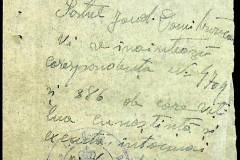 Postul Jand. Domi
Vi se inaintează
corespondența No. 4709
și 886 de care veți
lua cunoștință și
executa, întocmai